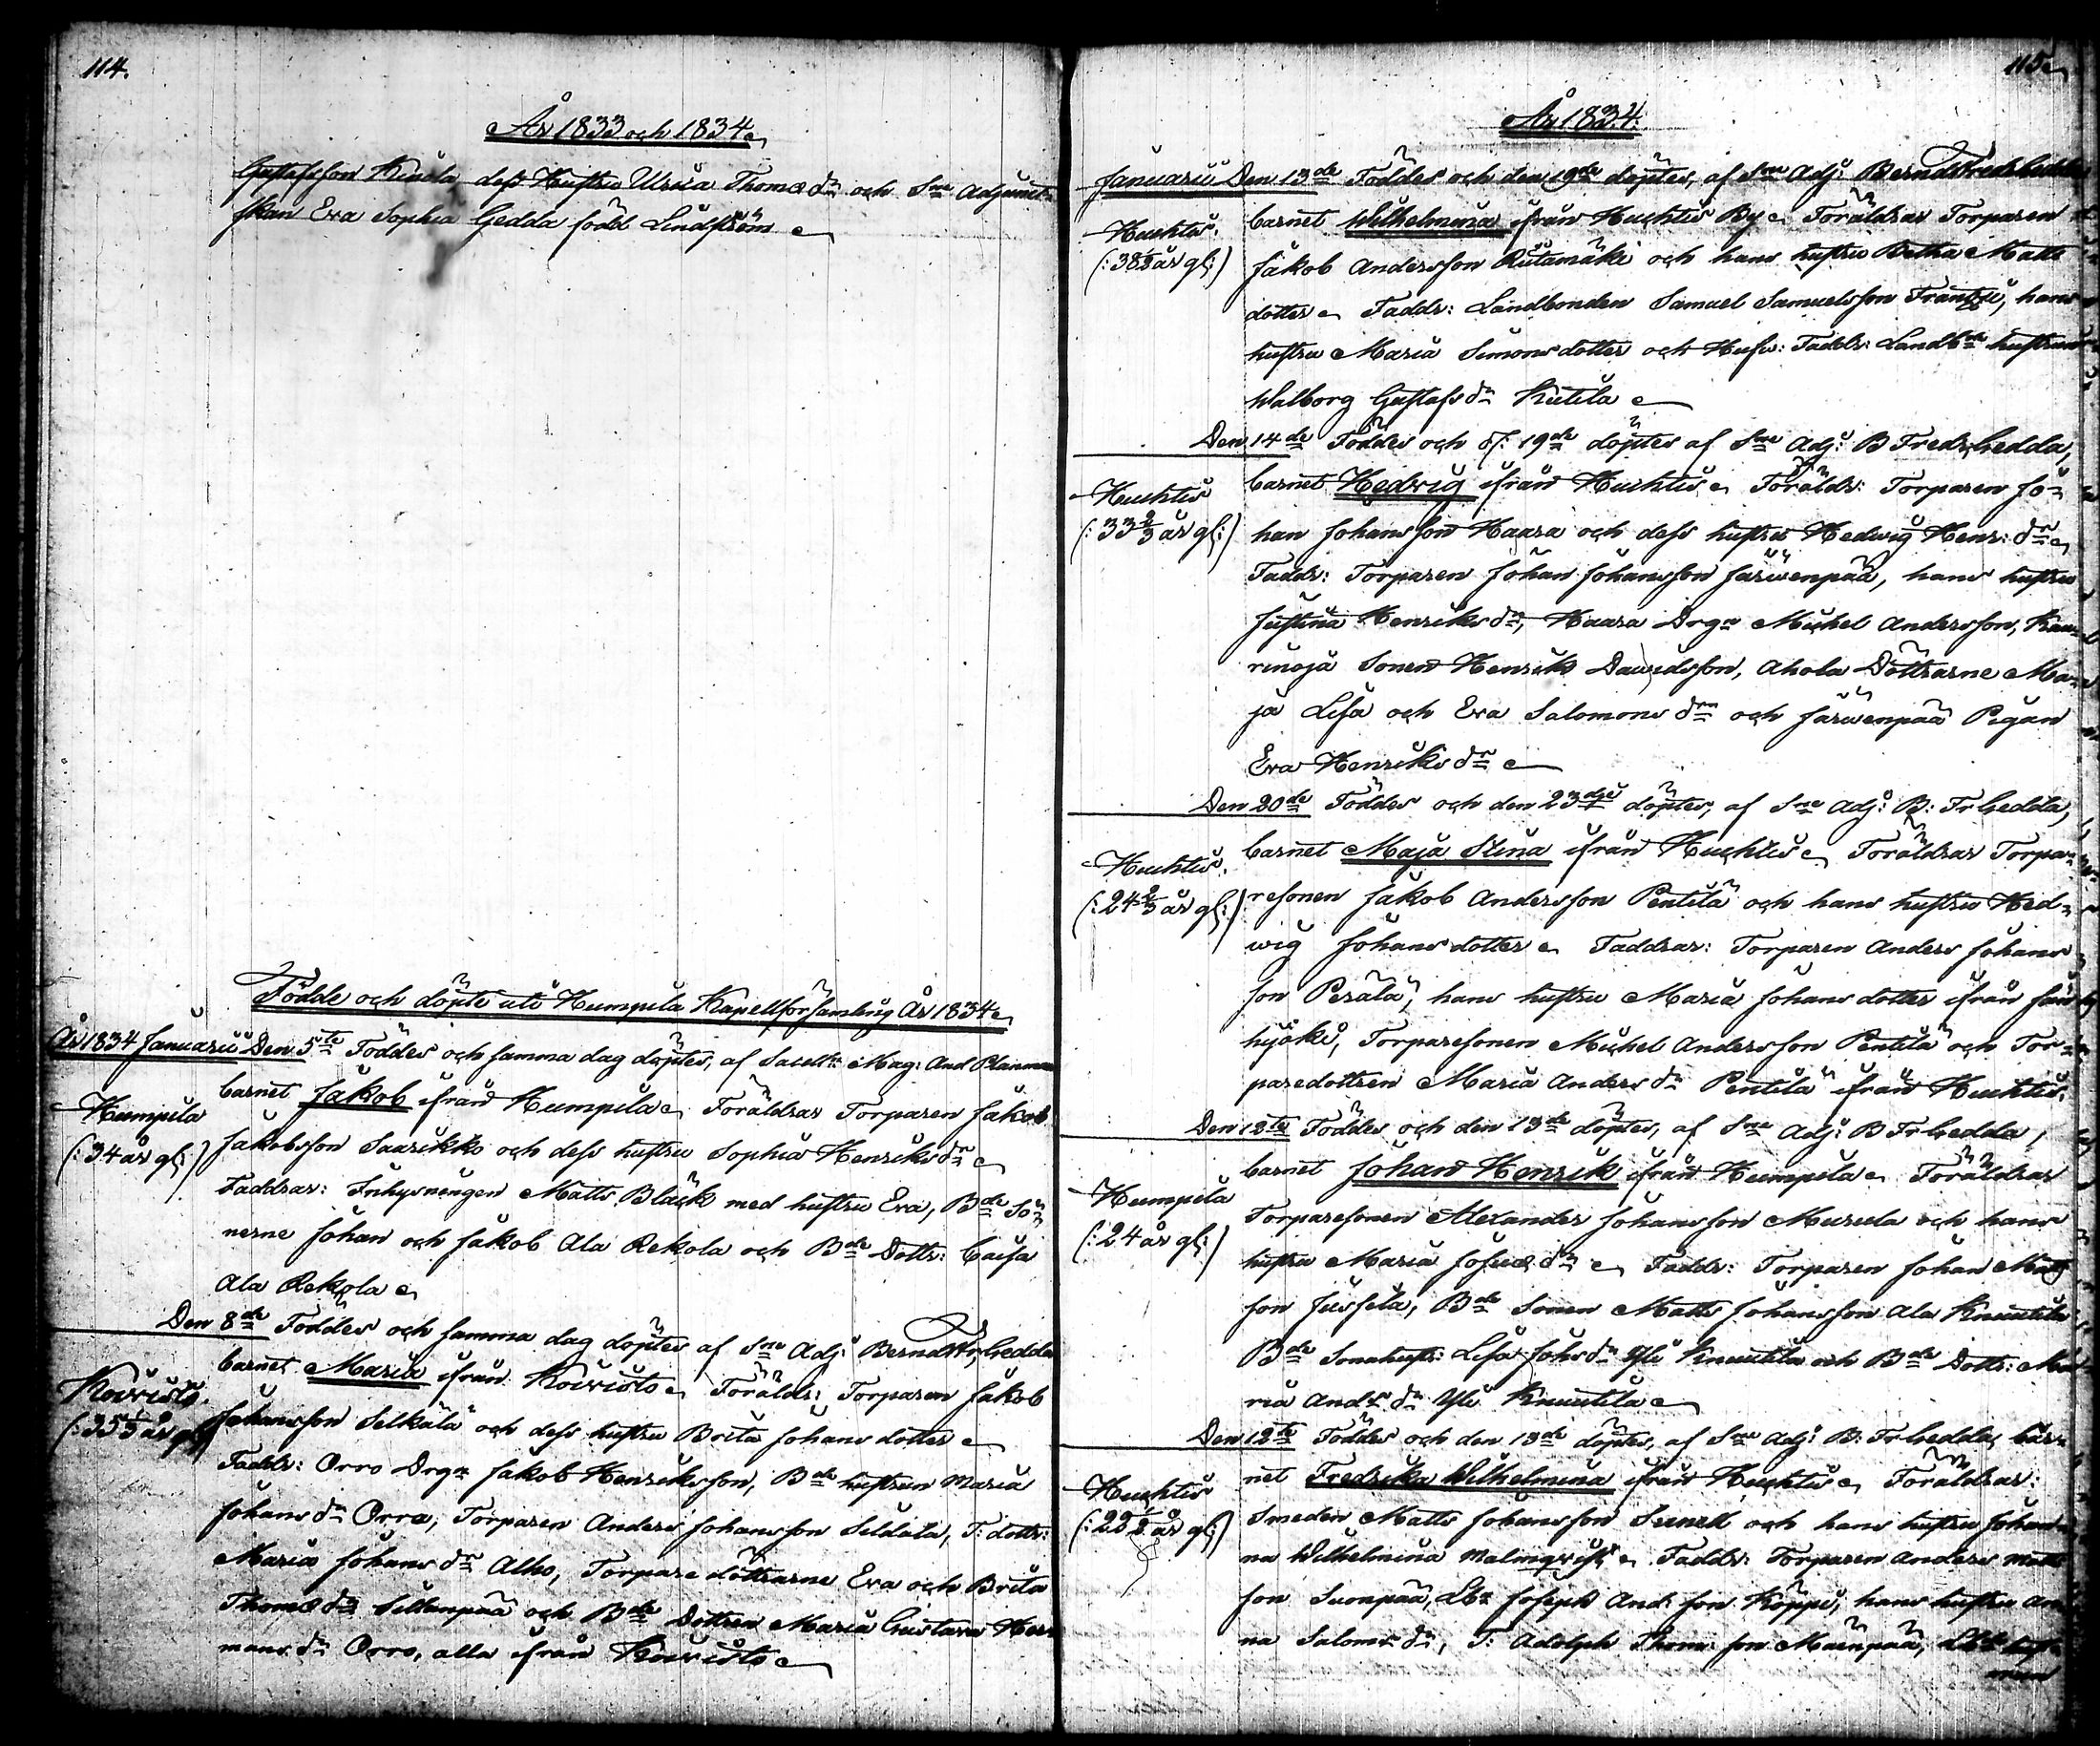 114.
År 1833 och 1834
Gustafsson Kiusla dess Hustru Ulrica Thomædr och Sne Adjunct-
skan Eva Sophia Gedda född Lindström
Födde och döpte uti Humpila Kapellförsamling År 1834
År 1834 Januarii Den 5te Föddes och samma dag döptes, af Sacelln Mag: And Planman
Humpila
(: 34 år gl:)
barnet Jakob ifrån Humpila Föräldrar Torparen Jakob
Jakobsson Saarikko och dess hustru Sophia Henriksdr
Faddrar: Inhysningen Matts Bläck med hustru Eva, Bde Sö-
nerne Johan och Jakob Ala Rekola och Bde Dottr: Caisa
Ala Rekola
Den 8de Föddes och samma dag döptes af Sne Adj: Berndt Fr Gedda
Koivisto.
(: 35 1/3 år gl:)
barnet Maria ifrån Koivisto Föräldr: Torparen Jakob
Johansson Selkälä och dess hustru Brita Johansdotter
Faddr: Orro Drgn Jakob Henriksson, Bde hustrun Maria
Johansdr Orro, Torparen Anders Johansson Seldala, T: dottr:
Maria Johansdr Alho, Torpare döttrarne Eva och Brita
Thomædr Sillanpää och Bde Dottren Maria Gustava Her-
mansdr Orro, alla ifrån Koivisto
115
År 1834.
Januarii Den 13de Föddes och den 19de döptes, af Sne Adj: Bernd Fredr Gedda
Huchtis.
(: 38 1/2 år gl:)
barnet Wilhelmina ifrån Huchtis By Föräldrar Torparen
Jakob Andersson Riitamäki och hans hustru Betha Matts
dotter Faddr: Landbonden Samuel Samuelsson Frantzi, hans
hustru Maria Simonsdotter och Hufv: Faddr: Landbde hustrun
Walborg Gustafsdr Kiitila
Den 14de Föddes och d: 19de döptes af Sne Adj: B Fredr Gedda,
Huchtis
(: 33 2/3 år gl:)
barnet Hedvig ifrån Huchtis Föräldr: Torparen Jo-
han Johansson Haara och dess hustru Hedwig Henr: dr
Faddr: Torparen Johan Johansson Järvenpää, hans hustru
Justina Henriksdr, Haara Drgn Michel Andersson, Kaa-
rinoja Sonen Henrik Davidsson, Ahola Döttrarne Ma-
ja Lisa och Eva Salomonsdrr och Järvenpää Pigan
Eva Henriksdr
Den 20de Föddes och den 23dje döptes, af Sne Adj: B: Fr Gedda,
Huchtis.
(: 24 2/3 år gl:)
barnet Maja Stina ifrån Huchtis Föräldrar Torpa-
resonen Jakob Andersson Pentilä och hans hustru Hed-
wig Johansdotter Faddrar: Torparen Anders Johans
son Perälä, hans hustru Maria Johansdotter ifrån Jän
hijoki, Torparesonen Michel Andersson Pentilä och Tor-
paredottren Maria Andersdr Pentilä ifrån Huchtis.
Den 12te Föddes och den 13de döptes, af Sne Adj: B Fr Gedda,
Humpila
(: 24 år gl:)
barnet Johan Henrik ifrån Humpila Föräldrar
Torparesonen Alexander Johansson Murula och hans
hustru Maria Josuæ dr Faddr: Torparen Johan Matts
son Jussila, Bde Sonen Matts Johansson Ala Knuutila
Bde Sonahustr: Lisa Johsdr Yli Knuutila och Bde Dottr: Ma-
ria Andrs dr Yli Knuutila
Den 12te Föddes och den 13de döptes, af Sne Adj: B: Fr Gedda, bar-
Huchtis
(: 25 1/2 år gl:)
net Fredrika Wilhelmina ifrån Huchtis Föräldrar:
Smeden Matts Johansson Sunell och hans hustru Johan-
na Wilhelmina Malmqvist Faddr: Torparen Anders Matts
son Suonpää, Lbn Joseph And: son Köppi, hans hustru An
na Salomsdr, T: Adolph Thom: son Mäenpää,